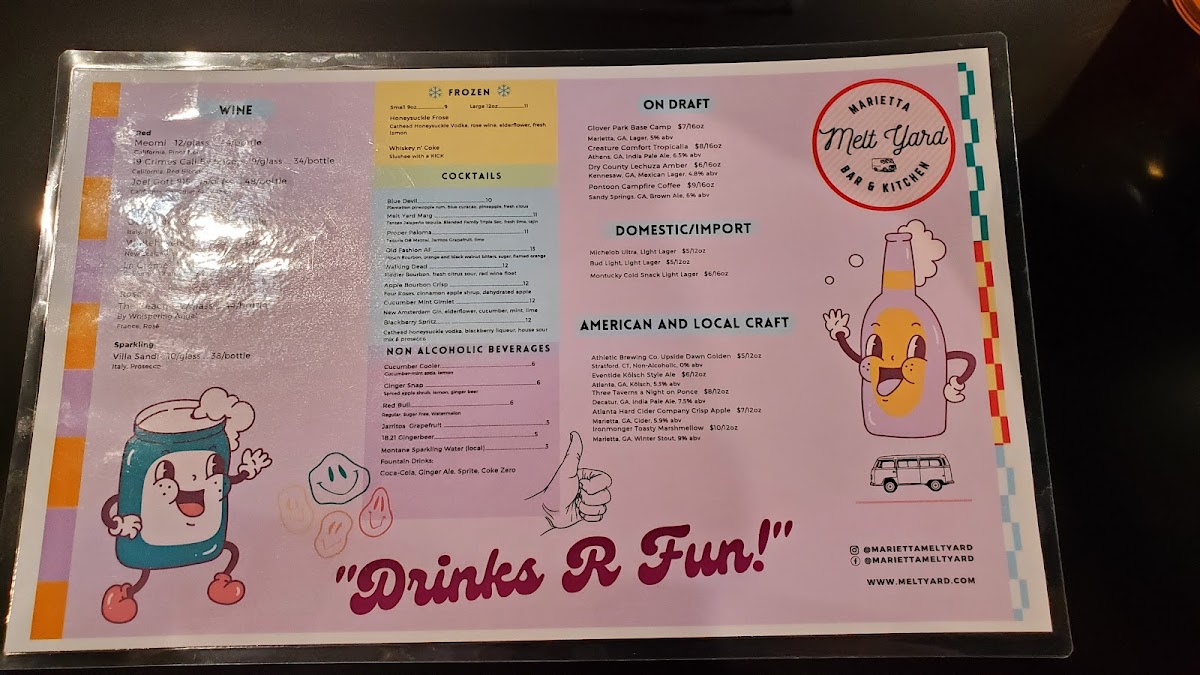 WINE
Red
Meomi 12/glass /bottle
California, Pinot
19 Crimes Cali 9/glass 34/bottle
California, Red
Joel Gott
Italy,
New
Rosé
By Whispering Angel
France, Rosé
Sparkling
Villa Sandi 10/glass 38/bottle
Italy, Prosecco
FROZEN
Small 9oz 9 Large 12oz 11
Honeysuckle Frose
Cathead Honeysuckle Vodka, rose wine, elderflower, fresh
lemon
Whiskey n' Coke
Slushee with a KICK
COCKTAILS
Blue Devil 10
Plantation pineapple rum, Blue curacao, pineapple, fresh citrus
Melt Yard Marg 11
Tanteo Jalapeño tequila, Blended Family Triple Sec, fresh lime, tajin
Proper Paloma 11
Tequila De Mezcal, Jarritos Grapefruit, lime
Old Fashion AF 15
Bourbon, orange and black walnut bitters, sugar, flamed orange
Walking Dead 12
Fiddler Bourbon, fresh citrus sour, red wine float
Apple Bourbon Crisp 12
Four Roses, cinnamon apple shrup, dehydrated apple
Cucumber Mint Gimlet 12
New Amsterdam Gin, elderflower, cucumber, mint, lime
Blackberry Spritz 12
Cathead honeysuckle vodka, blackberry liqueur, house sour
mix & prosecco
NON ALCOHOLIC BEVERAGES
Cucumber Cooler 6
Cucumber-mint soda, lemon
Ginger Snap 6
Spiced apple shrub, lemon, ginger beer
Red Bull 6
Regular, Sugar Free, Watermelon
Jarritos Grapefruit 5
18.21 Gingerbeer 5
Montane Sparkling Water (local) 3
Fountain Drinks:
Coca-Cola, Ginger Ale, Sprite, Coke Zero
ON DRAFT
Glover Park Base Camp $7/16oz
Marietta, GA, Lager, 5% abv
Creature Comfort Tropicalia $8/16oz
Athens, GA, India Pale Ale, 6.5% abv
Dry County Lechuza Amber $6/16oz
Kennesaw, GA, Mexican Lager, 4.8% abv
Pontoon Campfire Coffee $9/16oz
Sandy Springs, GA, Brown Ale, 6% abv
DOMESTIC/IMPORT
Michelob Ultra, Light Lager $5/12oz
Bud Light, Light Lager $5/12oz
Montucky Cold Snack Light Lager $6/16oz
AMERICAN AND LOCAL CRAFT
Athletic Brewing Co. Upside Dawn Golden $5/12oz
Stratford, CT, Non-Alcoholic, 0% abv
Eventide Kölsch Style Ale $6/12oz
Atlanta, GA, Kölsch, 5.3% abv
Three Taverns a Night on Ponce $8/12oz
Decatur, GA, India Pale Ale, 7.5% abv
Atlanta Hard Cider Company Crisp Apple $7/12oz
Marietta, GA, Cider, 5.9% abv
Ironmonger Toasty Marshmellow $10/12oz
Marietta, GA, Winter Stout, 9% abv
MARIETTA
Melt Yard
BAR & KITCHEN
"Drinks R Fun!"
@MARIETTAMELTYARD
@MARIETTAMELTYARD
WWW.MELTYARD.COM